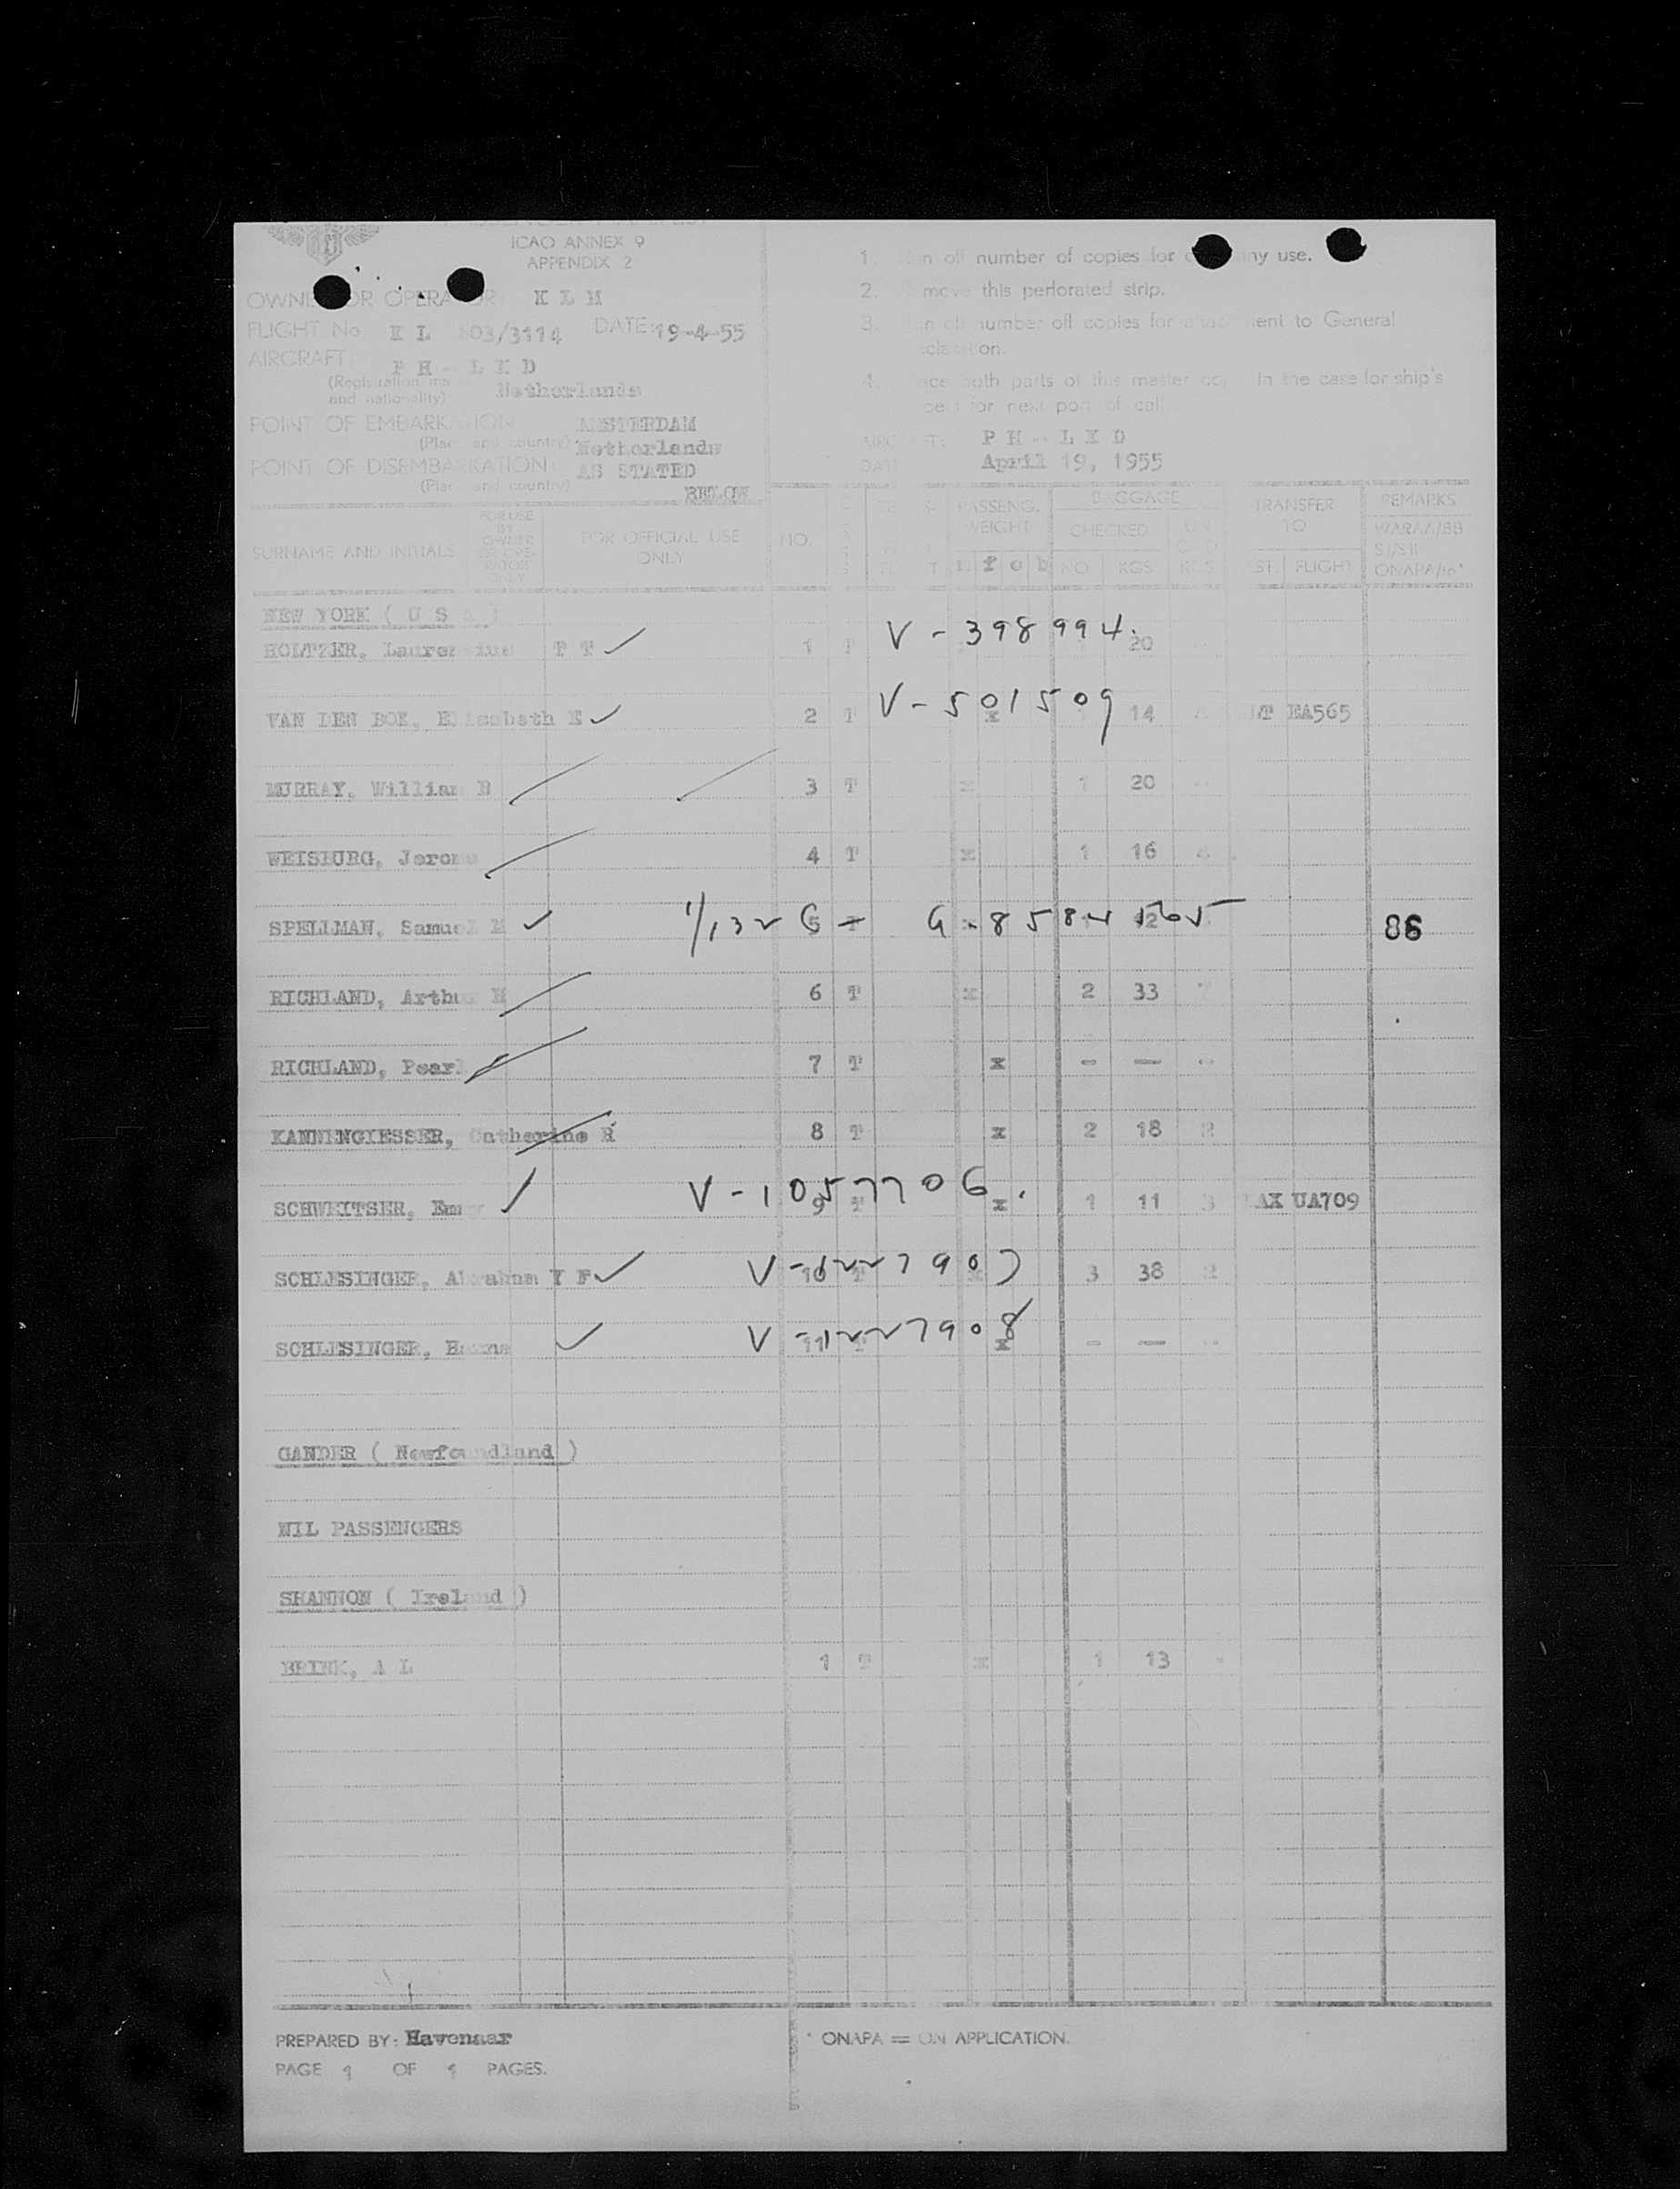 ICAO ANNEX 9
APPENDIX 2
OWNER OR OPERATOR K L M
FLIGHT No K L 603/3114 DATE: 19-4-55
AIRCRAFT: P H - L K D
(Registration
and nationality) Netherlands
POINT OF EMBARKATION AMSTERDAM
(Place and country) Netherlands
POINT OF DISEMBARKATION: AS STATED
(Place and country) BELOW
1. number of copies for company use.
2. Remove this perforated strip.
3. Run off number off copies for attachment to General
Declaration.
4. both parts of this master copy In the case for ship's
for next port of call
AIRCRAFT: P H - L K D
DATE April 19, 1955
SURNAME AND INITIALS
FOR USE BY OWNER OR OPERATOR ONLY
FOR OFFICIAL USE ONLY
NO.
PASSENG. WEIGHT
BAGGAGE
CHECKED
NO. KGS
TRANSFER TO
FLIGHT
REMARKS
WARAA/BB
ONAPA/to*
NEW YORK ( U S A )
HOLTZER, Laurentius P T 1 T V-398994. 20
VAN DEN BOK, Elisabeth E 2 T V-501509 x 14 EA565
MURRAY, William B 3 T x 1 20
WEISBURG, Jerome 4 T x 1 16
SPELLMAN, Samuel M 5 86
RICHLAND, Arthur H 6 T x 2 33
RICHLAND, Pearl 7 T x - -
KANNENGIESSER, Catherine R 8 T x 2 18 2
SCHWEITSER, Emmy 9 T V-1057706. x 1 11 3 LAX UA709
SCHLESINGER, Abraham Y F 10 T V-1227907 x 3 38 2
SCHLESINGER, 11 T V-1227908 x - -
GANDER ( Newfoundland )
NIL PASSENGERS
SHANNON ( Ireland )
BRINK, A L 1 T x 1 13 -
PREPARED BY: Havenaar
PAGE 1 OF 1 PAGES.
* ONAPA = ON APPLICATION.